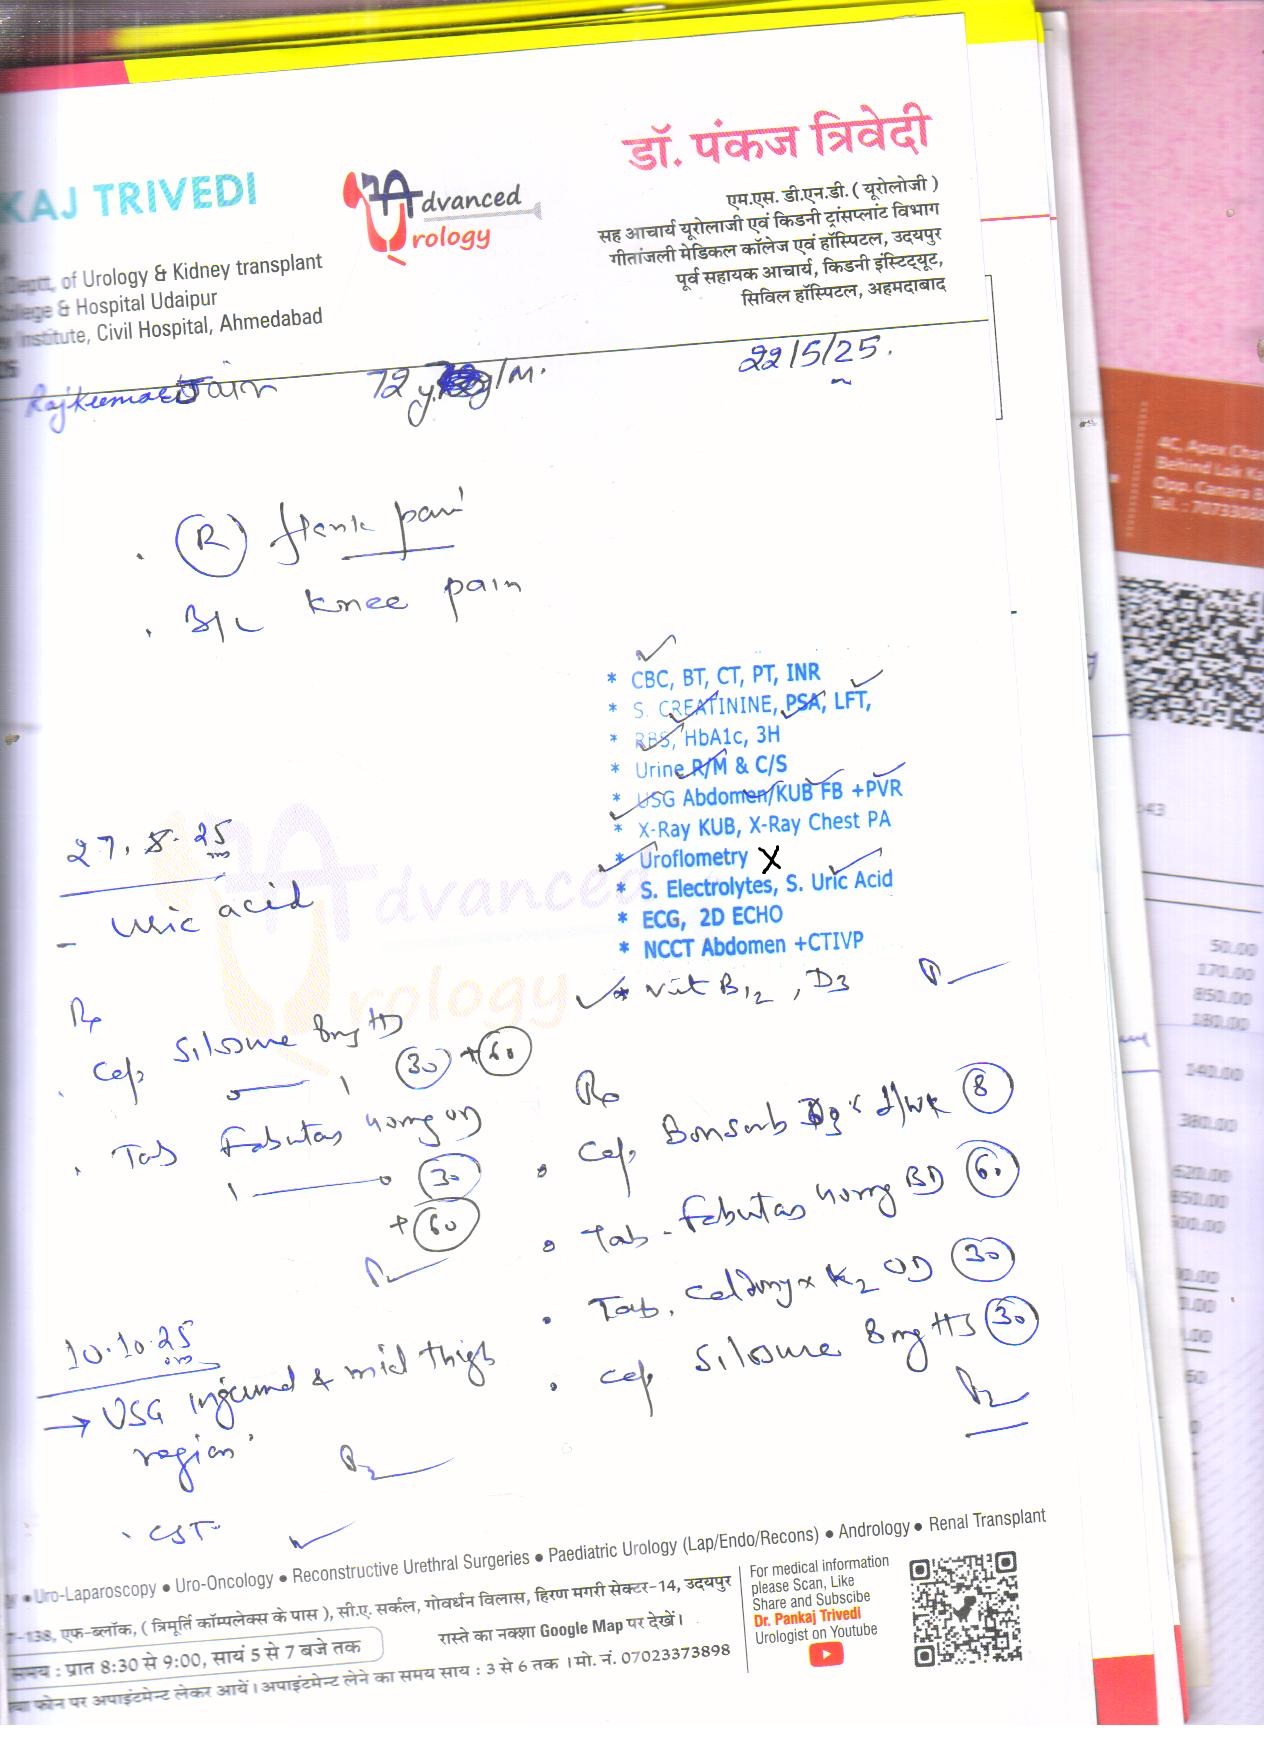 KAJ TRIVEDI
Deptt. of Urology & Kidney transplant
College & Hospital Udaipur
Institute, Civil Hospital, Ahmedabad
Advanced
Urology
डॉ. पंकज त्रिवेदी
एम.एस. डी.एन.डी. ( यूरोलोजी )
सह आचार्य यूरोलाजी एवं किडनी ट्रांसप्लांट विभाग
गीतांजली मेडिकल कॉलेज एवं हॉस्पिटल, उदयपुर
पूर्व सहायक आचार्य, किडनी इंस्टिट्यूट,
सिविल हॉस्पिटल, अहमदाबाद
Rajkumar Jain 72 y/M. 22/5/25.
. R flank pain
. B/L knee pain
* CBC, BT, CT, PT, INR
* S. CREATININE, PSA, LFT,
* RBS, HbA1c, 3H
* Urine R/M & C/S
* USG Abdomen/KUB FB +PVR
* X-Ray KUB, X-Ray Chest PA
* Uroflometry X
* S. Electrolytes, S. Uric Acid
* ECG, 2D ECHO
* NCCT Abdomen +CTIVP
* Vit B12, D3
27.8.25
- Uric acid
Advanced
Urology
Rp
. Cap Silosure 8mg HS
1 30 + 60
. Tab Febutas 40mg OD
1 30
+ 60
10.10.25
→ USG inguinal & mid thigh
region
. CST
Rp
. Cap. Bonsorb 1/wk 8
. Tab - Febutas 40mg BD 60
. Tab. K2 OD 30
. Cap Silosure 8mg HS 30
Uro-Laparoscopy • Uro-Oncology • Reconstructive Urethral Surgeries • Paediatric Urology (Lap/Endo/Recons) • Andrology • Renal Transplant
7-138, एफ-ब्लॉक, ( त्रिमूर्ति कॉम्पलेक्स के पास ), सी.ए. सर्कल, गोवर्धन विलास, हिरण मगरी सेक्टर-14, उदयपुर
समय : प्रात 8:30 से 9:00, सायं 5 से 7 बजे तक
रास्ते का नक्शा Google Map पर देखें।
फोन पर अपाइंटमेन्ट लेकर आयें। अपाइंटमेन्ट लेने का समय साय : 3 से 6 तक । मो. नं. 07023373898
For medical information
please Scan, Like
Share and Subscibe
Dr. Pankaj Trivedi
Urologist on Youtube
4C, Apex
Behind Lok
Opp. Canara
:43
50.00
170.00
850.00
180.00
140.00
380.00
620.00
850.00